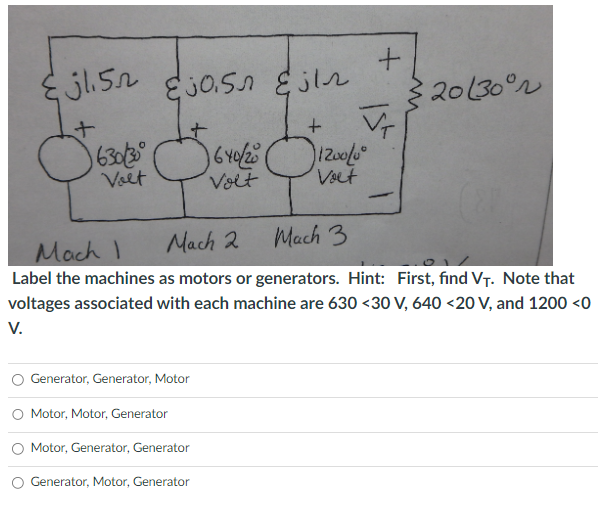 j1.5Ω j0.5Ω j1Ω + 20∠30°Ω
+ + + V̄T
630∠30° 640∠20° 1200∠0°
Volt Volt Volt −
Mach 1 Mach 2 Mach 3
Label the machines as motors or generators. Hint: First, find VT. Note that
voltages associated with each machine are 630 <30 V, 640 <20 V, and 1200 <0
V.
Generator, Generator, Motor
Motor, Motor, Generator
Motor, Generator, Generator
Generator, Motor, Generator